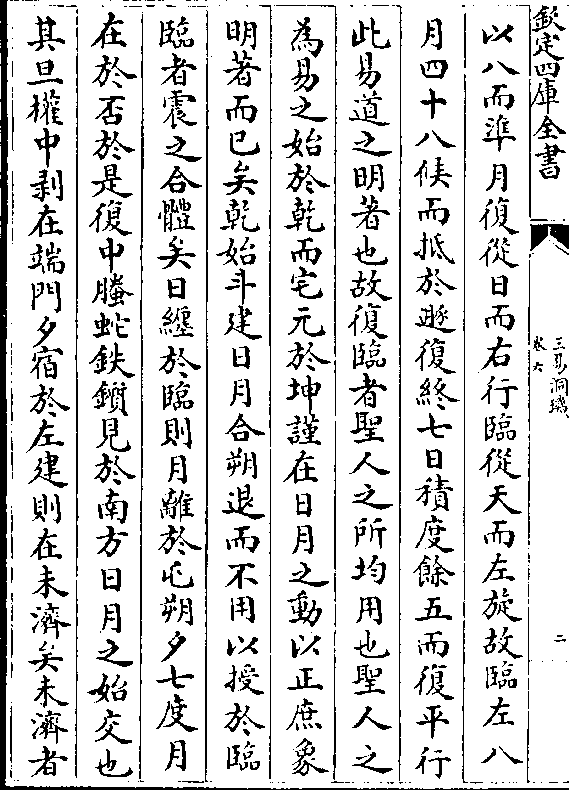 欽定四庫全書
三易洞璣
卷六
二
以八而準月復從日而右行臨從天而左旋故臨左八
月四十八候而抵於遯復終七日積度餘五而復平行
此易道之明著也故復臨者聖人之所均用也聖人之
為易之始於乾而宅元於坤謹在日月之動以正庶象
明著而已矣乾始斗建日月合朔退而不用以授於臨
臨者震之合體矣日纏於臨則月離於屯朔夕七度月
在於否於是復中螣蛇鈇鑕見於南方日月之始交也
其旦權中剥在端門夕宿於左建則在未濟矣未濟者